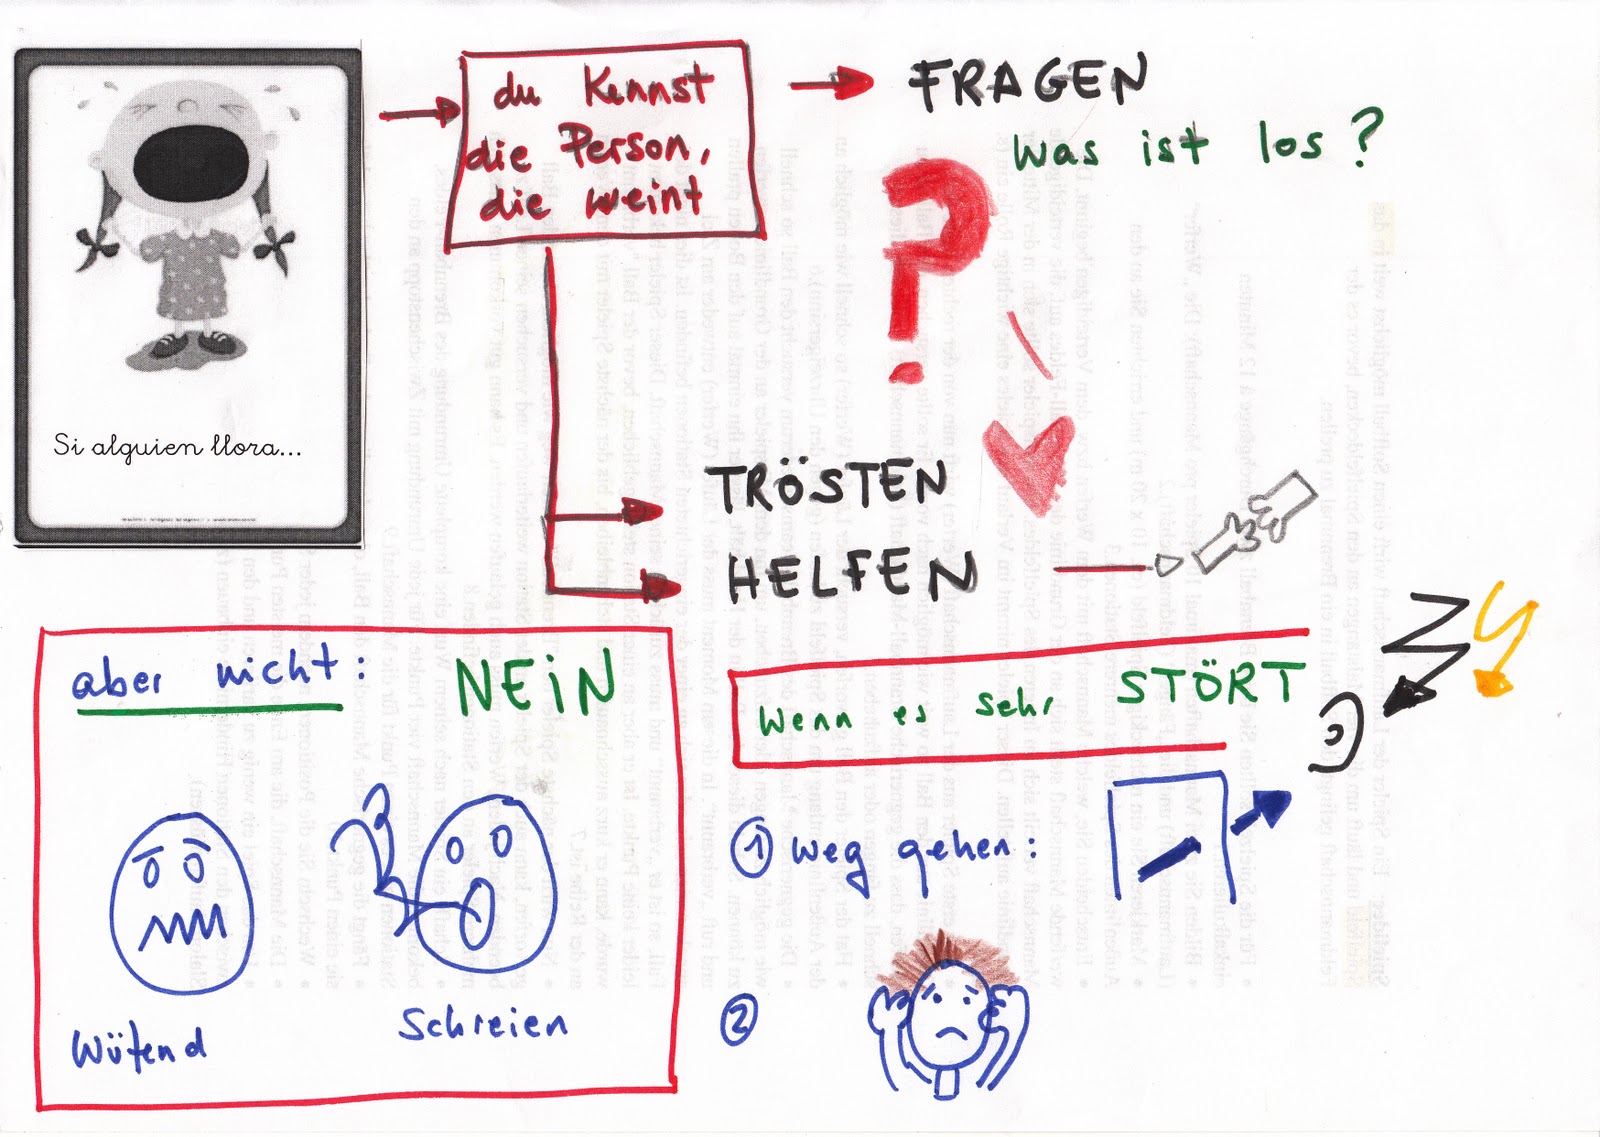 Si alguien llora...
du Kennst
die Person,
die weint
FRAGEN
was ist los?
TRÖSTEN
HELFEN
aber nicht: NEiN
Wütend
Schreien
Wenn es sehr STÖRT
① weg gehen:
②